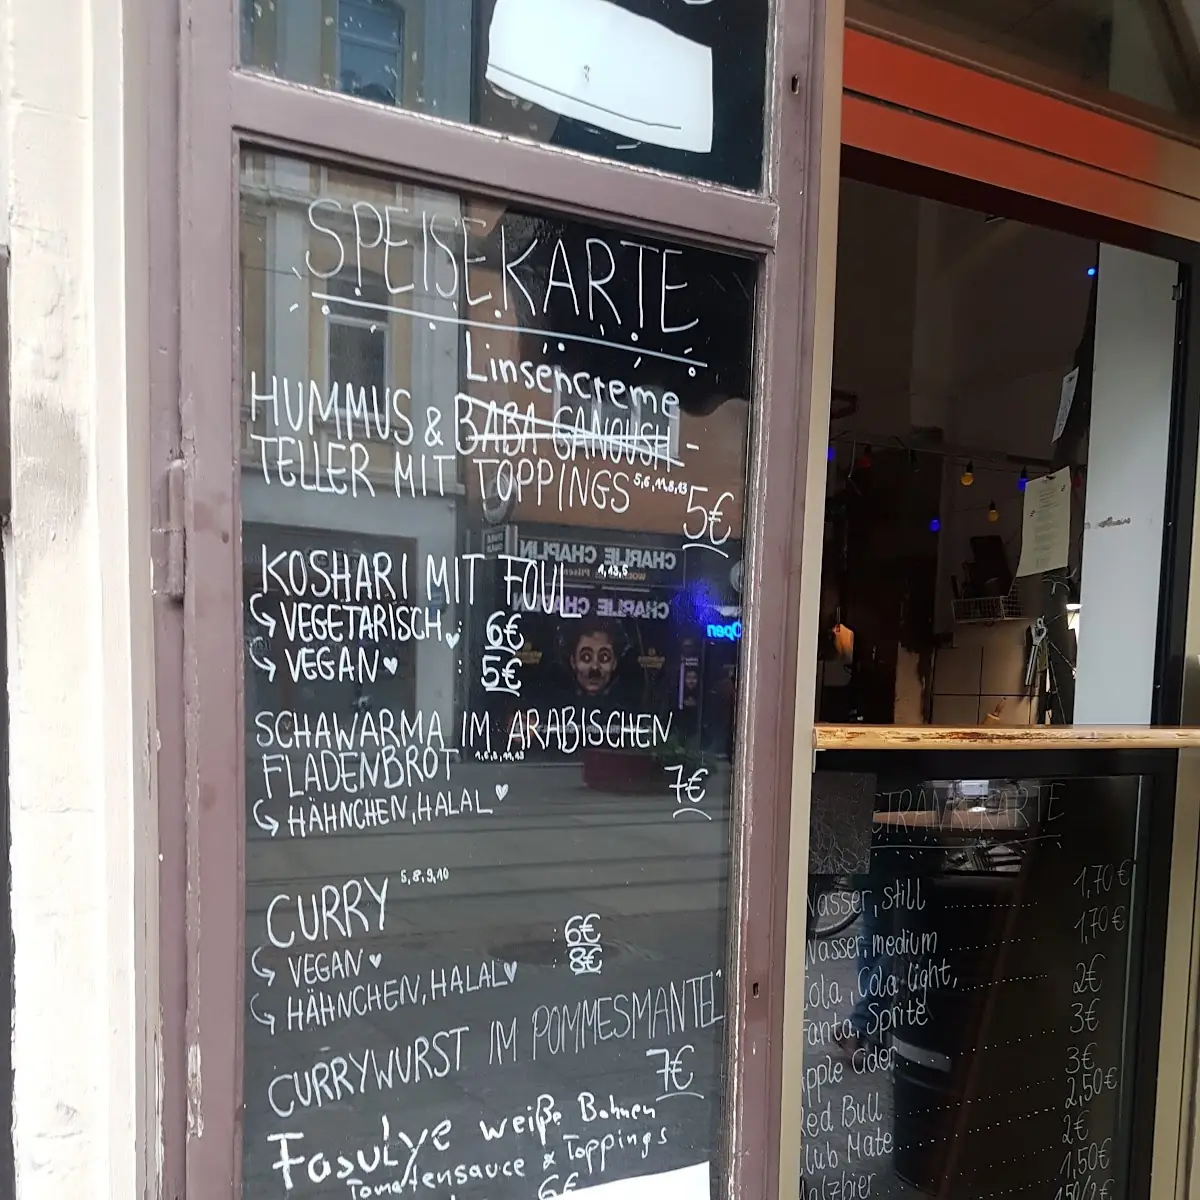 SPEISEKARTE
Linsencreme
HUMMUS & BABA GANOUSH -
TELLER MIT TOPPINGS 5,6,11,8,13
5€
KOSHARI MIT FOUL 1,13,5
↳ VEGETARISCH ♥ : 6€
↳ VEGAN ♥ : 5€
SCHAWARMA IM ARABISCHEN
FLADENBROT
7€
↳ HÄHNCHEN, HALAL ♥
CURRY 5,8,9,10
↳ VEGAN ♥ : 6€
↳ HÄHNCHEN, HALAL ♥ : 8€
CURRYWURST IM POMMESMANTEL
7€
Fasulye weiße Bohnen
Tomatensauce & Toppings
6€
CHARLIE CHAPLIN
CHARLIE CHAPLIN
Open
GETRÄNKEKARTE
Wasser, still .......... 1,70€
Wasser, medium .......... 1,70€
Cola, Cola light, .......... 2€
Fanta, Sprite .......... 3€
Apple Cider .......... 3€
Red Bull .......... 2,50€
Club Mate .......... 2€
Malzbier .......... 1,50€